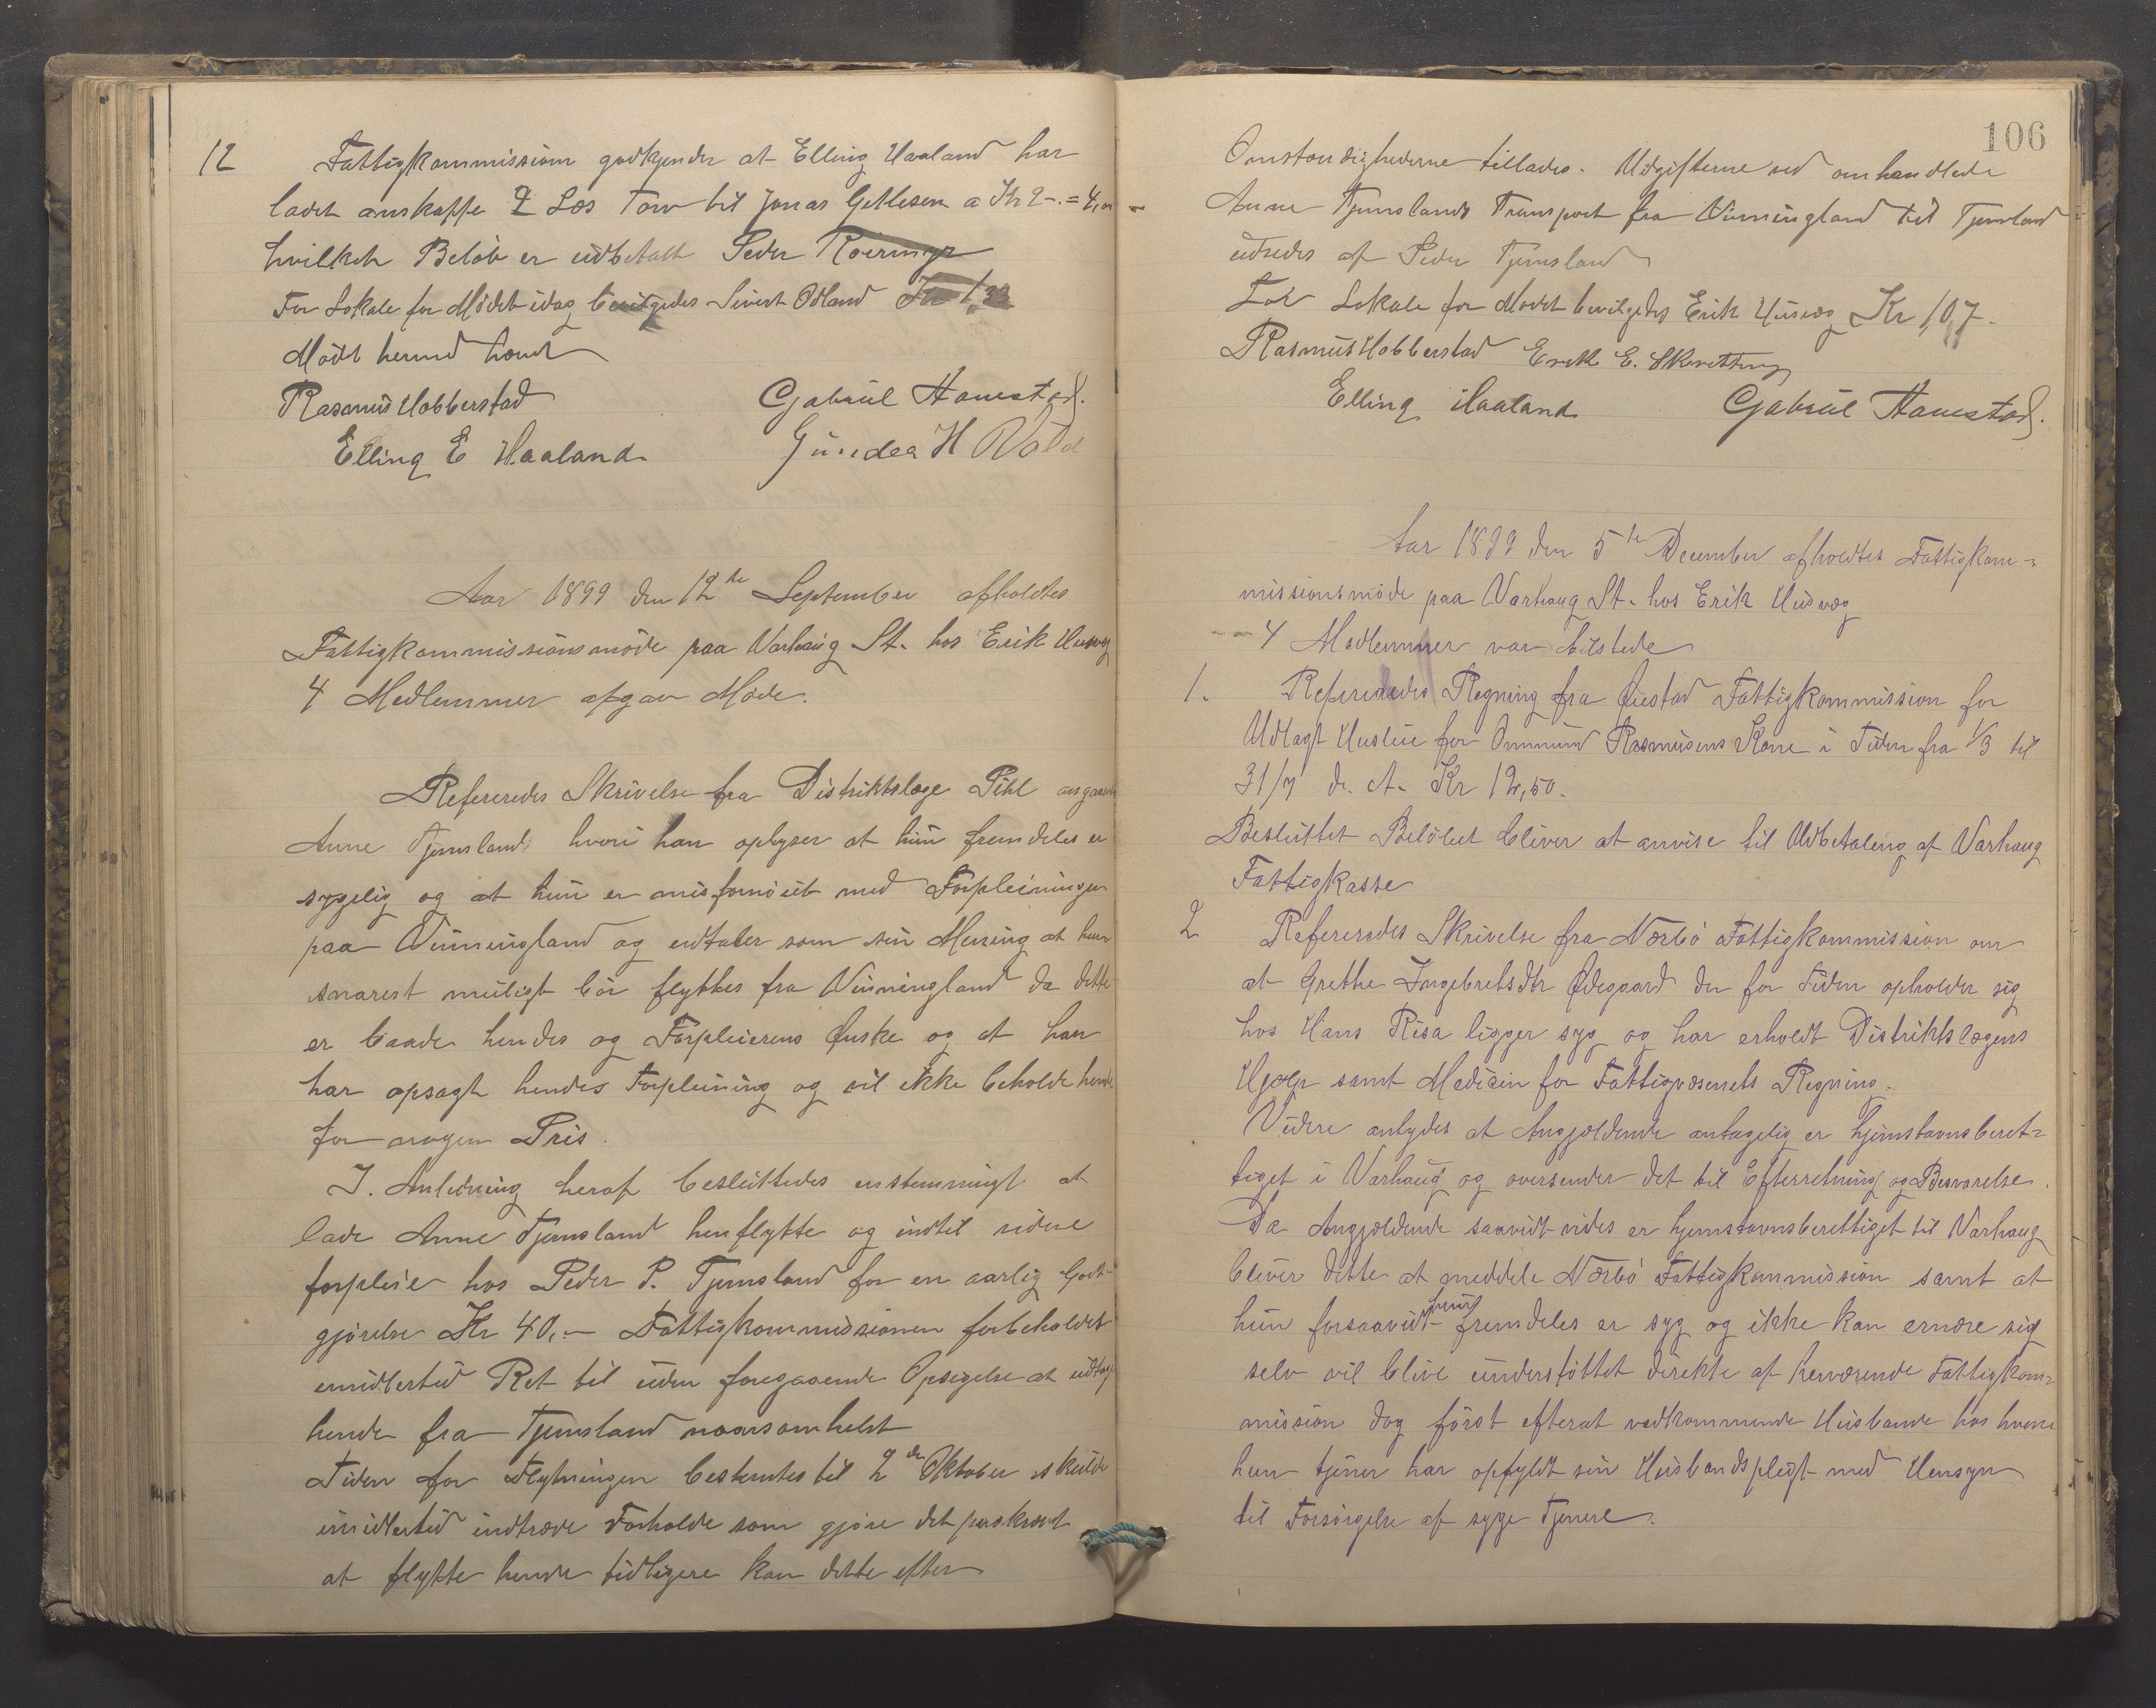 12 Fattigkommissionen godkjender at Elling Haaland har
ladet anskaffe 2 Læs Torv til Jonas Getlesen a Kr 2-. = 4,00
hvilket Beløb er udbetalt Peder Roeringe
For Lokale for Mødet idag bevilgedes Sivert Odland Kr 1,33
Mødt hermed hævet
Rasmus Hobberstad Gabriel Hanestad.
Elling E Haaland. H Vold
Aar 1899 den 12te September afholdtes
Fattigkommissionsmøde paa Varhaug St. hos Erik Husvæg
4 Medlemmer afgav Møde.
Refereredes Skrivelse fra Distriktslæge Pihl angaaende
Anne Tjemsland hvori han oplyser at hun fremdeles er
sygelig og at hun er misfornøiet med Forpleiningen
paa Vinningland og udtaler som sin Mening at hun
snarest muligt bør flyttes fra Vinningland da dette
er baade hendes og Forpleierens Ønske og at han
har opsagt hendes Forpleining og vil ikke beholde hende
for nogen Pris.
I. Anledning heraf besluttedes enstemmigt at
lade Anne Tjemsland henflytte og indtil videre
forpleie hos Peder P. Tjemsland for en aarlig Godt-
gjørelse Kr 40,- Fattigkommissionen forbeholdet
imidlertid Ret til uden foregaaende Opsigelse at udtage
hende fra Tjemsland naarsomhelst
Tiden for Flytningen bestemtes til 2den Oktober skulde
imidlertid indtræde Forholde som gjøre det paakrævet
at flytte hende tidligere kan dette efter
106
Omstændighederne tillades. Udgifterne ved omhandlede
Anne Tjemslands Transport fra Vinningland til Tjemsland
udredes af Peder Tjemsland
For Lokale for Mødet bevilgedes Erik Husvæg Kr 1,07.
Rasmus Hobberstad Erik E. Skretting
Elling Haaland Gabriel Hanestad.
Aar 1899 den 5te December afholdtes Fattigkom-
missionsmøde paa Varhaug St. hos Erik Husvæg
4 Medlemmer var tilstede
1. Refereredes Regning fra Øiestad Fattigkommission for
Udlagt Husleie for Ommund Rasmusens Kone i Tiden fra 1/3 til
31/7 d. A. Kr 12,50.
Besluttet Beløbet bliver at anvise til Udbetaling af Varhaug
Fattigkasse
2 Refereredes Skrivelse fra Nærbø Fattigkommission om
at Grethe Ingebretsdtr Ødegaard der for Tiden opholder sig
hos Hans Risa ligger syg og har erholdt Distriktslægens
Hjælp samt Medicin for Fattigvæsenets Regning.
Videre antydes at Angjældende antagelig er hjemstavnsberet-
tiget i Varhaug og oversender det til Efterretning og Besvarelse.
Da Angjældende saavidt vides er hjemstavnsberettiget til Varhaug
bliver dette at meddele Nærbø Fattigkommission samt at
hun forsaavidt hun fremdeles er syg og ikke kan ernære sig
selv vil blive understøttet direkte af herværende Fattigkom-
mission dog først efterat vedkommende Husbande hos hvem
hun tjener har opfyldt sin Husbondspligt med Hensyn
til Forsørgelse af syge Tjenere.